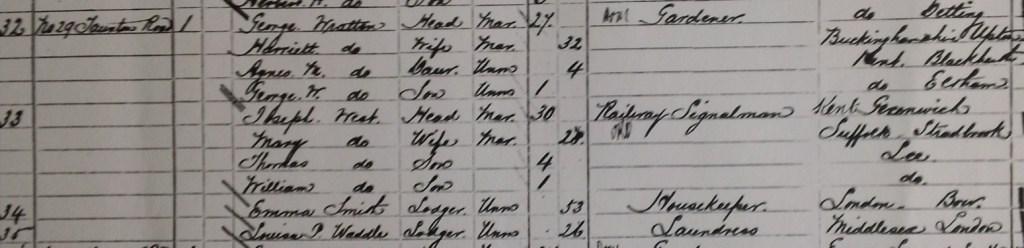 do Son
32 No 29 Taunton Road 1 George Wratten Head Mar. 27 Gardener. do Detling
Harriett do Wife Mar. 32 Buckinghamshire Upton
Agnes M. do Daur. Unm 4 Kent. Blackheath
George W. do Son Unm 1 do Eltham
33 Joseph West Head Mar. 30 Railway Signalman Kent Greenwich
Mary do Wife Mar. 28 Suffolk Stradbrook
Thomas do Son 4 Lee
William do Son 1 do.
34 Emma Smith Lodger. Unm 53 Housekeeper. London. Bow.
35 Louisa P. Waddle Lodger. Unm 26 Laundress Middlesex London